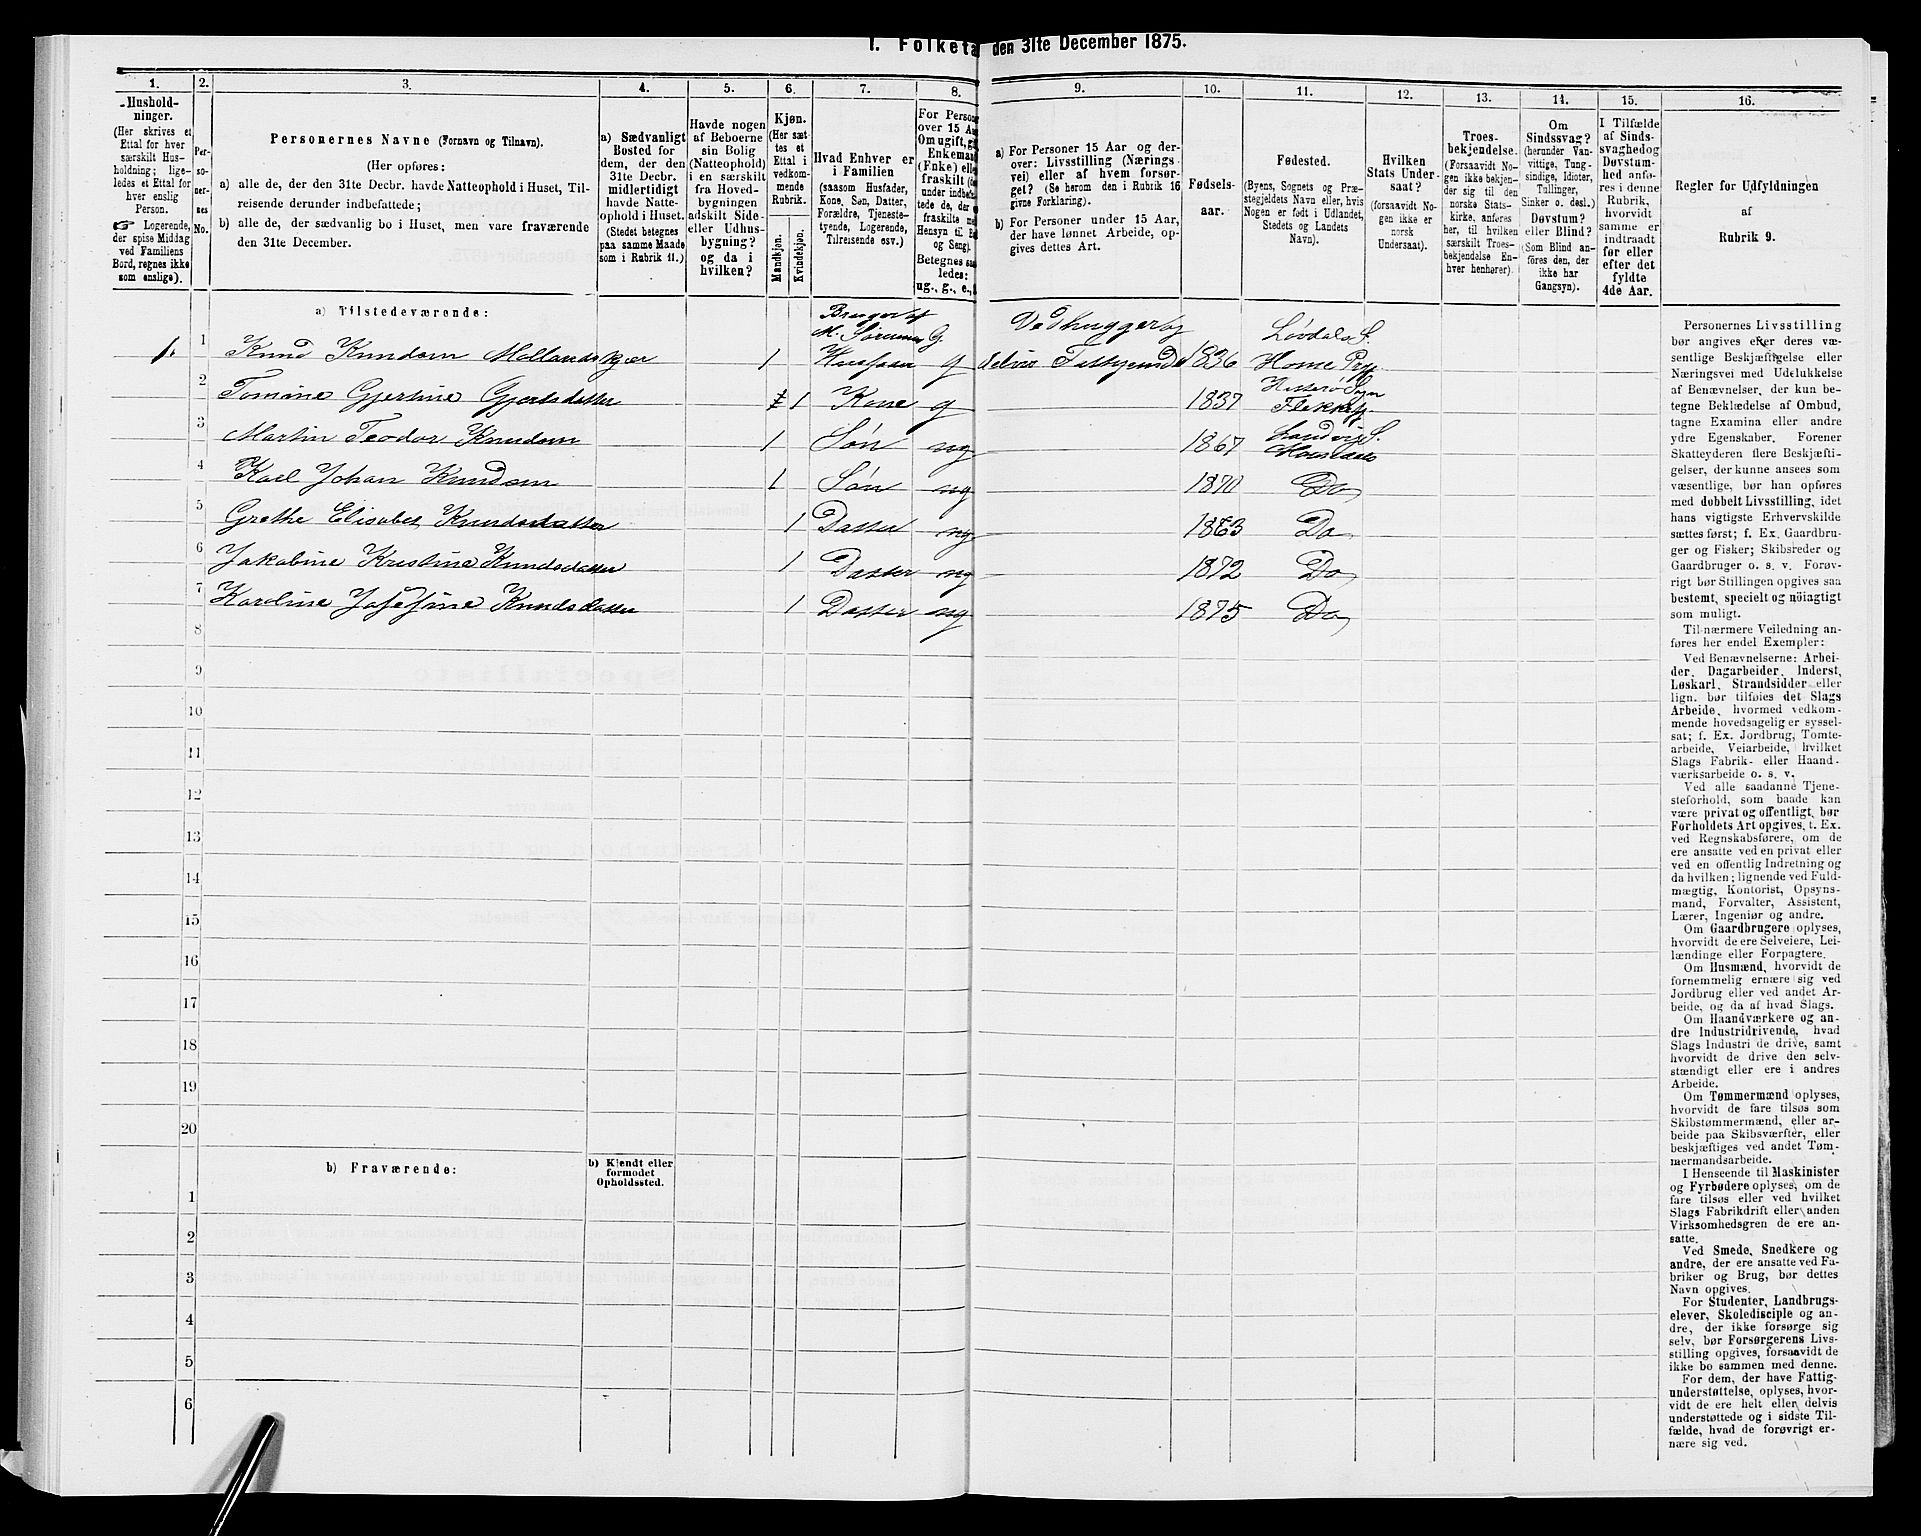 1. Folketal den 31te December 1875.
1. 2. 3. 4. 5. 6. 7. 8. 9. 10. 11. 12. 13. 14. 15. 16.
Hushold-
ninger.
(Her skrives et
Ettal for hver
særskilt Hus-
holdning; lige-
ledes et Ettal for
hver enslig
Person.
☞ Logerende,
der spise Middag
ved Familiens
Bord, regnes ikke
som enslige).
Per-
so-
ner-
nes
No.
Personernes Navne (Fornavn og Tilnavn).
(Her opføres:
a) alle de, der den 31te Decbr. havde Natteophold i Huset, Til-
reisende derunder indbefattede;
b) alle de, der sædvanlig bo i Huset, men vare fraværende
den 31te December.
a) Sædvanligt
Bosted for
dem, der den
31te Decbr.
midlertidigt
havde Natte-
ophold i Huset.
(Stedet betegnes
paa samme Maade
som i Rubrik 11.)
Havde nogen
af Beboerne
sin Bolig
(Natteophold)
i en særskilt
fra Hoved-
bygningen
adskilt Side-
eller Udhus-
bygning?
og da i
hvilken?
Kjøn.
(Her sæt-
tes et
Ettal i
vedkom-
mende
Rubrik.
Mandkjøn.
Kvindekjøn.
Hvad Enhver er
i Familien
(saasom Husfader,
Kone, Søn, Datter,
Forældre, Tjeneste-
tyende, Logerende,
Tilreisende osv.)
For Persone
over 15 Aa
Om ugift, gi
Enkeman
(Enke) elle
fraskilt
under indbefat-
tede de, der e
fraskilte me
Hensyn til Bo
og Seng).
Betegnes saa
ledes:
ug., g., e.,
a) For Personer 15 Aar og der-
over: Livsstilling (Nærings-
vei) eller af hvem forsør-
get? (Se herom den i Rubrik 16
givne Forklaring).
b) For Personer under 15 Aar,
der have lønnet Arbeide, op-
gives dettes Art.
Fødsels-
aar.
Fødested.
(Byens, Sognets og Præ-
stegjeldets Navn eller, hvis
Nogen er født i Udlandet,
Stedets og Landets
Navn).
Hvilken
Stats Under-
saat?
(forsaavidt No-
gen ikke er
norsk
Undersaat).
Troes-
bekjendelse.
(Forsaavidt No-
gen ikke bekjen-
der sig til den
norske Stats-
kirke, anføres
her, til hvilken
særskilt Troes-
bekjendelse En-
hver henhører).
Om
Sindssvag?
(herunder Van-
vittige, Tung-
sindige, Idioter,
Tullinger,
Sinker o. desl.)
Døvstum?
eller Blind?
(Som Blind an-
føres den, der
ikke har
Gangsyn).
I Tilfælde
af Sinds-
svaghed og
Døvstum-
hed anfø-
res i denne
Rubrik,
hvorvidt
samme er
indtraadt
før eller
efter det
fyldte
4de Aar.
Regler for Udfyldningen
af
Rubrik 9.
a) Tilstedeværende:
Bruger af
M. Sørumes G.
Vedhugger og
Løvdals S.
1. 1 Knud Knudsen Mollandskjær 1 Husfaer g delvis Fattigunds 1836 Home Prg.
Hitterø Sogn
2 Tomine Gjertine Gjertsdatter 1 Kone g 1837 Flekkefj.
Landvig S.
3 Martin Teodor Knudsen 1 Søn ug 1867 Homedals
4 Karl Johan Knudsen 1 Søn ug 1870 Do
5 Grethe Elisabet Knudsdatter 1 Datter ug 1863 Do
6 Jakobine Kristine Knudsdatter 1 Datter ug 1872 Do
7 Karoline Josefine Knudsdatter 1 Datter ug 1875 Do
8
9
10
11
12
13
14
15
16
17
18
19
20
b) Fraværende:
b) Kjendt eller
formodet
Opholdssted.
1
2
3
4
5
6
Personernes Livsstilling
bør angives efter deres væ-
sentlige Beskjæftigelse eller
Næringsvei med Udelukkelse
af Benævnelser, der kun be-
tegne Beklædelse af Ombud,
tagne Examina eller andre
ydre Egenskaber. Forener
Skatteyderen flere Beskjæfti-
gelser, der kunne ansees som
væsentlige, bør han opføres
med dobbelt Livsstilling, idet
hans vigtigste Erhvervskilde
sættes først; f. Ex. Gaardbru-
ger og Fisker; Skibsreder og
Gaardbruger o. s. v. Forøv-
rigt bør Stillingen opgives saa
bestemt, specielt og nøiagtigt
som muligt.
Til nærmere Veiledning an-
føres her endel Exempler:
Ved Benævnelserne: Arbei-
der, Dagarbeider, Inderst,
Løskarl, Strandsidder eller
lign. bør tilføies det Slags
Arbeide, hvormed vedkom-
mende hovedsagelig er syssel-
sat; f. Ex. Jordbrug, Tomte-
arbeide, Veiarbeide, hvilket
Slags Fabrik- eller Haand-
værksarbeide o. s. v.
Ved alle saadanne Tjene-
steforhold, som baade kan
være privat og offentligt, bør
Forholdets Art opgives, t. Ex.
ved Regnskabsførere, om de
ere ansatte ved en privat eller
ved en offentlig Indretning og
da hvilken; lignende ved Fuld-
mægtig, Kontorist, Opsyns-
mand, Forvalter, Assistent,
Lærer, Ingeniør og andre.
Om Gaardbrugere oplyses,
hvorvidt de ere Selveiere, Lei-
lændinge eller Forpagtere.
Om Husmænd, hvorvidt de
fornemmelig ernære sig ved
Jordbrug eller ved andet Ar-
beide, og da af hvad Slags.
Om Haandværkere og an-
dre Industridrivende, hvad
Slags Industri de drive, samt
hvorvidt de drive den selv-
stændigt eller ere i andres
Arbeide.
Om Tømmermænd oplyses,
hvorvidt de fare tilsøs som
Skibstømmermænd, eller ar-
beide paa Skibsværfter, eller
beskjæftiges ved andet Tøm-
mermandsarbeide.
I Henseende til Maskinister
og Fyrbødere oplyses, om de
fare tilsøs eller ved hvilket
Slags Fabrikdrift eller anden
Virksomhedsgren de ere an-
satte.
Ved Smede, Snedkere og
andre, der ere ansatte ved Fa-
briker og Brug, bør dettes
Navn opgives.
For Studenter, Landbrugs-
elever, Skoledisciple og an-
dre, der ikke forsørge sig
selv, bør Forsørgerens Livs-
stilling opgives, forsaavidt de
ikke bo sammen med denne.
For dem, der have Fattig-
understøttelse, oplyses, hvor-
vidt de ere helt eller delvis
understøttede og i sidste Til-
fælde, hvad de forøvrigt er-
nære sig ved.